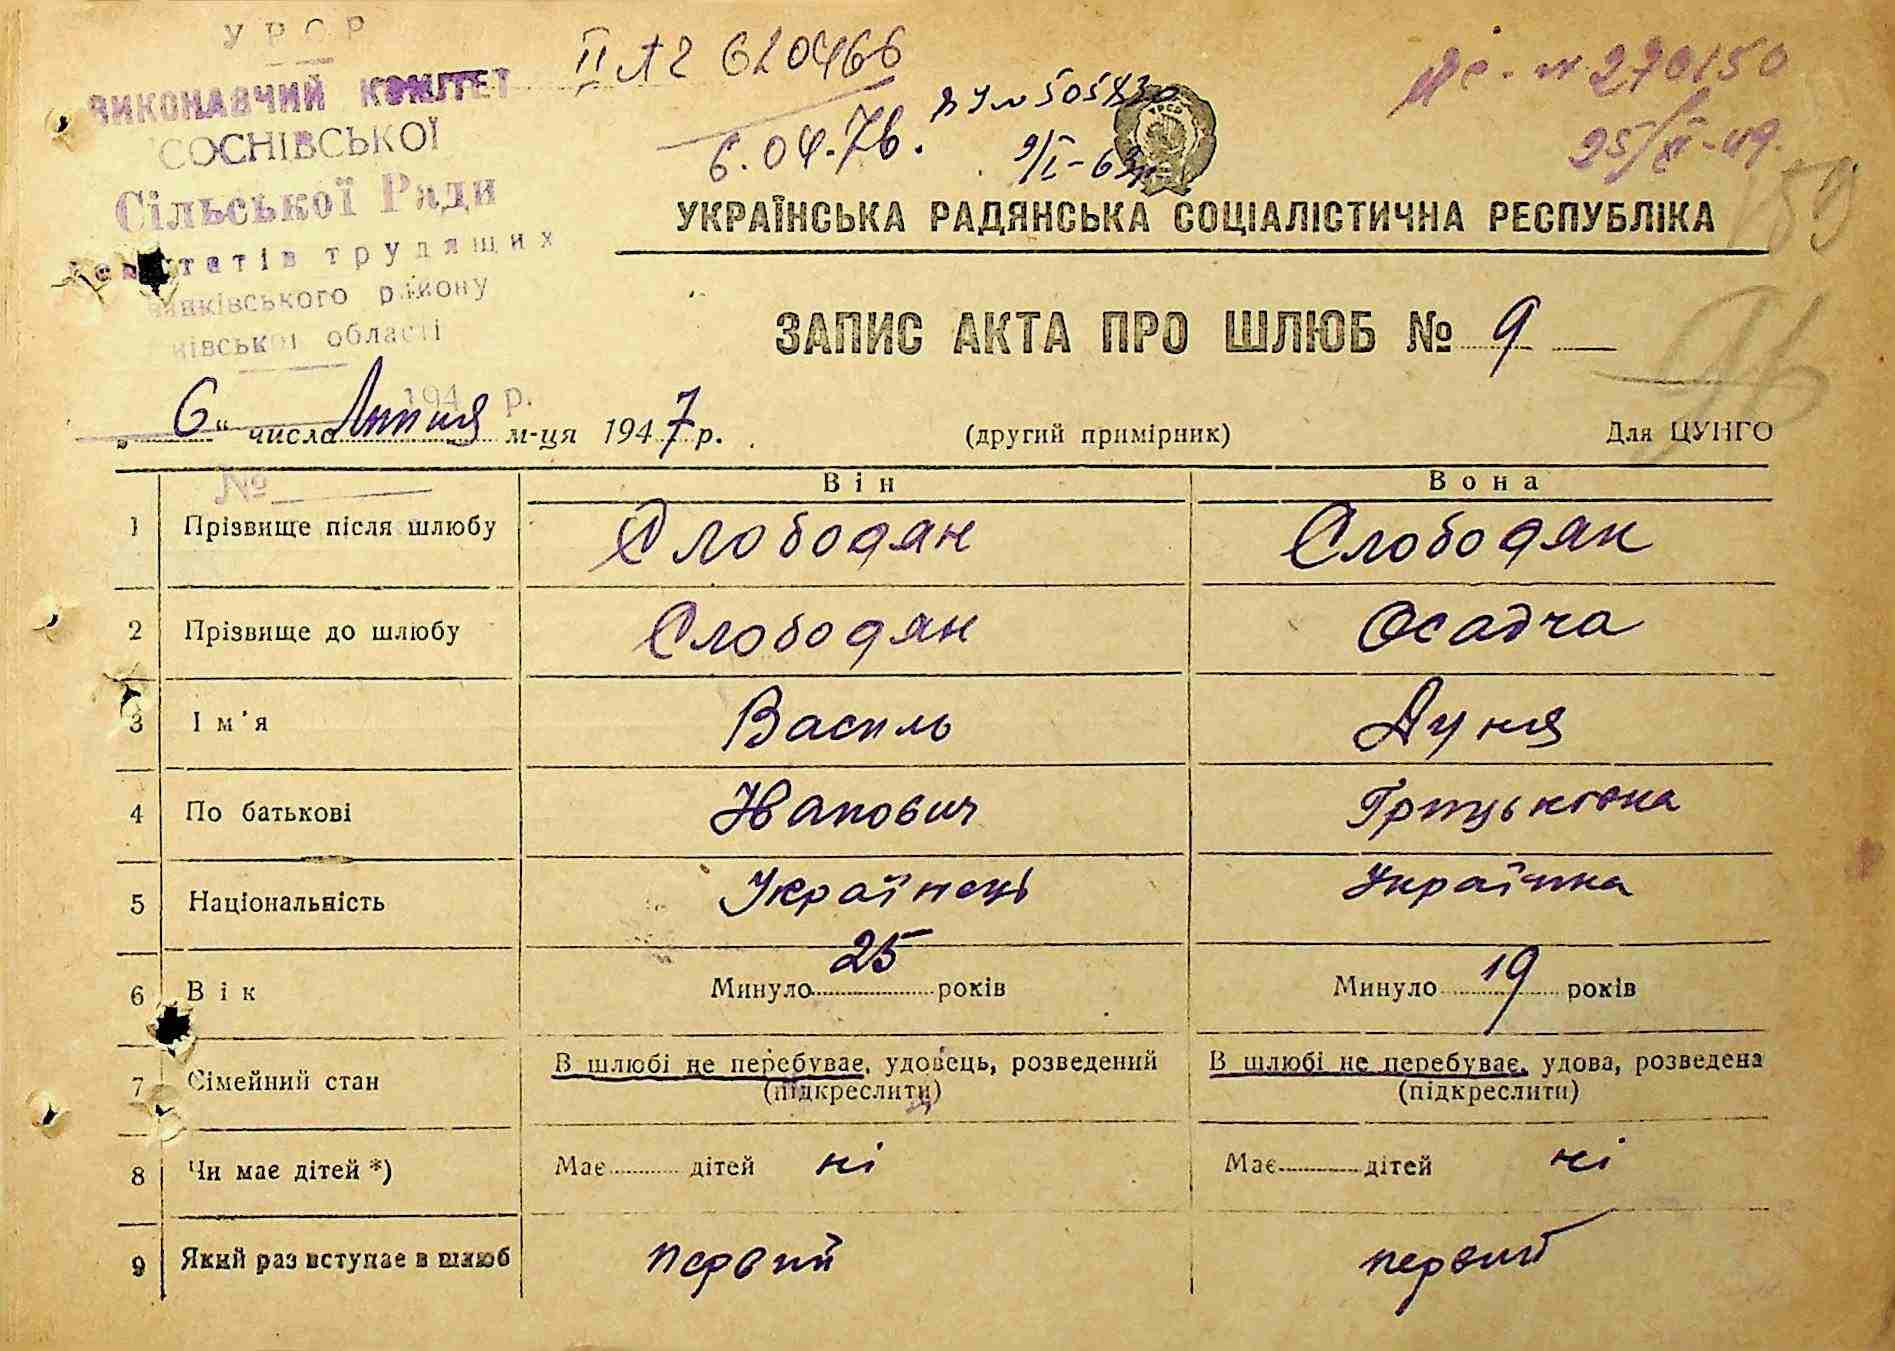 УРСР
ВИКОНАВЧИЙ КОМІТЕТ
СОСНІВСЬКОЇ
Сільської Ради
трудящих
району
області
194 р.
№
620466
6.04.76.
№ 505830
9/І-63
270150
25/ -49.
159
96
УКРАЇНСЬКА РАДЯНСЬКА СОЦІАЛІСТИЧНА РЕСПУБЛІКА
ЗАПИС АКТА ПРО ШЛЮБ № 9
„ 6 “ числа Липня м-ця 1947 р.
(другий примірник)
Для ЦУНГО
Він Вона
1 Прізвище після шлюбу Слободян Слободян
2 Прізвище до шлюбу Слободян Осадча
3 Ім'я Василь Дуня
4 По батькові Иванович Грицьковна
5 Національність Українець Українка
6 Вік Минуло 25 років Минуло 19 років
7 Сімейний стан В шлюбі не перебуває, удовець, розведений В шлюбі не перебуває, удова, розведена
(підкреслити) (підкреслити)
8 Чи має дітей *) Має дітей ні Має дітей ні
9 Який раз вступає в шлюб первий первий